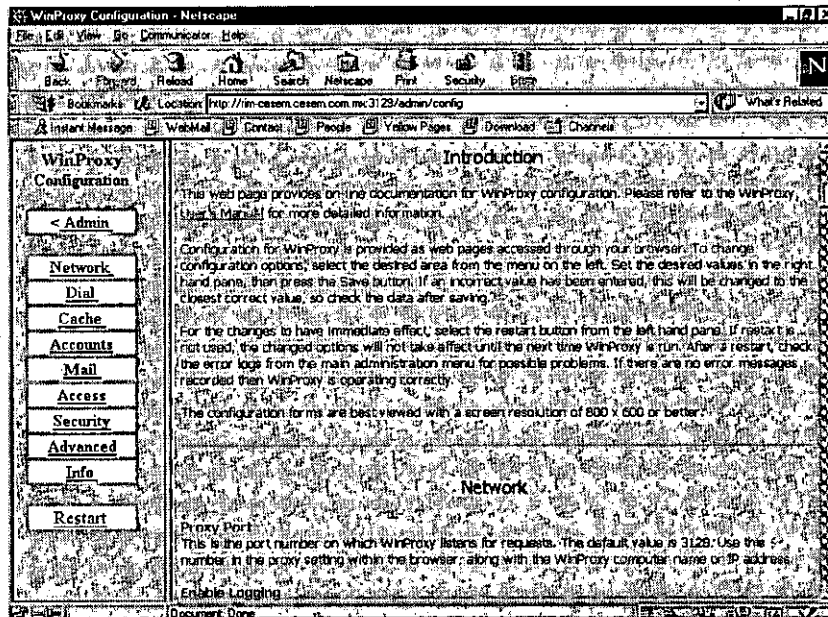 WinProxy Configuration - Netscape
File Edit View Go Communicator Help
Back Forward Reload Home Search Netscape Print Security Stop
Bookmarks Location: http://rim-cesem.cesem.com.mx:3129/admin/config What's Related
Instant Message WebMail Contact People Yellow Pages Download Channels
WinProxy
Configuration
< Admin
Network
Dial
Cache
Accounts
Mail
Access
Security
Advanced
Info
Restart
Introduction
This web page provides on-line documentation for WinProxy configuration. Please refer to the WinProxy
User's Manual for more detailed information.
Configuration for WinProxy is provided as web pages accessed through your browser. To change
configuration options, select the desired area from the menu on the left. Set the desired values in the right
hand pane, then press the Save button. If an incorrect value has been entered, this will be changed to the
closest correct value, so check the data after saving.
For the changes to have immediate effect, select the restart button from the left hand pane. If restart is
not used, the changed options will not take effect until the next time WinProxy is run. After a restart, check
the error logs from the main administration menu for possible problems. If there are no error messages
recorded then WinProxy is operating correctly.
The configuration forms are best viewed with a screen resolution of 800 x 600 or better.
Network
Proxy Port
This is the port number on which WinProxy listens for requests. The default value is 3128. Use this
number in the proxy setting within the browser, along with the WinProxy computer name or IP address.
Enable Logging
Document: Done